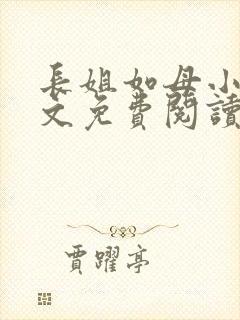 長姐如母小
文免費閱讀
賈躍亭